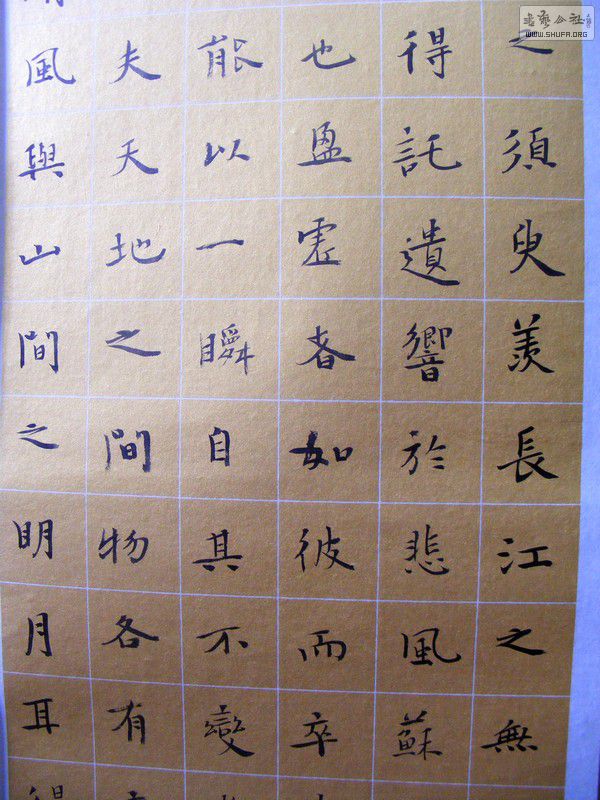 之須臾羨長江之無
得託遺響於悲風蘇
也盈虛者如彼而卒
能以一瞬自其不變
夫天地之間物各有
風與山間之明月耳得
書藝公社
WWW.SHUFA.ORG